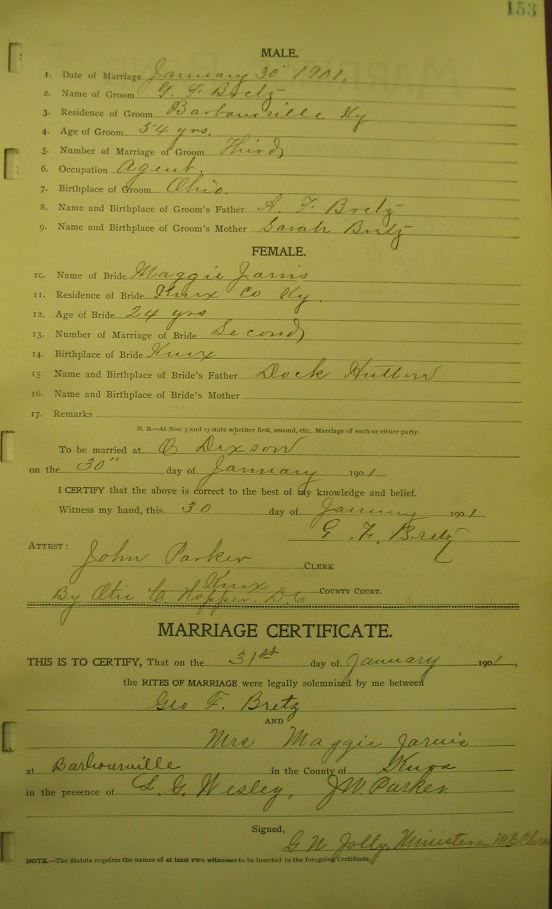 153
MALE.
1. Date of Marriage January 30" 1901.
2. Name of Groom G. F. Bretz
3. Residence of Groom Barbourville Ky
4. Age of Groom 54 yrs.
5. Number of Marriage of Groom Third
6. Occupation Agent.
7. Birthplace of Groom Ohio.
8. Name and Birthplace of Groom's Father A. F. Bretz
9. Name and Birthplace of Groom's Mother Sarah Bretz
FEMALE.
10. Name of Bride Maggie Jarvis
11. Residence of Bride Knox Co Ky.
12. Age of Bride 24 yrs
13. Number of Marriage of Bride Second
14. Birthplace of Bride Knox
15. Name and Birthplace of Bride's Father Dock Hutton
16. Name and Birthplace of Bride's Mother
17. Remarks
N. B.—At Nos. 5 and 13 state whether first, second, etc., Marriage of each or either party.
To be married at C Dixson
on the 30" day of January 1901
I CERTIFY that the above is correct to the best of my knowledge and belief.
Witness my hand, this 30 day of January 1901
G. F. Bretz
ATTEST: John Parker CLERK
Knox COUNTY COURT.
By Otis C Hopper. D.C
MARRIAGE CERTIFICATE.
THIS IS TO CERTIFY, That on the 31st day of January 1901,
the RITES OF MARRIAGE were legally solemnized by me between
Geo F. Bretz
AND
Mrs Maggie Jarvis
at Barbourville in the County of Knox
in the presence of L. G. Wesley, J.W. Parker
Signed,
G N Jolly, Minister in M E Church
NOTE.—The Statute requires the names of at least two witnesses to be inserted in the foregoing Certificate.